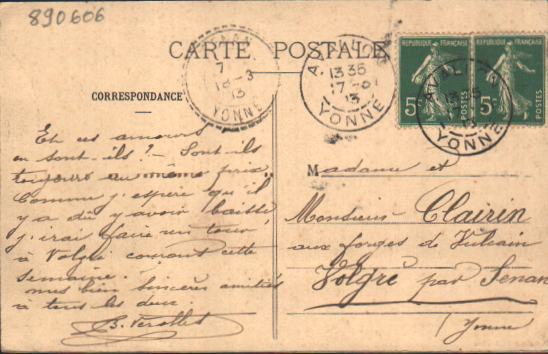 890606
CARTE POSTALE
CORRESPONDANCE
13 35
13
YONNE
REPUBLIQUE FRANÇAISE
5c
POSTES
REPUBLIQUE FRANÇAISE
5c
POSTES
YONNE
7
18-3
13
YONNE
Et ces amours
en sont-ils? - Sont-ils
toujours au même prix?
Comme j'espère qu'il
y a dû y avoir baisse
j'irai faire un tour
à Volgré courant cette
semaine.
mes bien sincères amitiés
à tous les deux.
Madame et
Monsieur Clairin
aux forges de Vulcain
Volgré par Senan
(Yonne